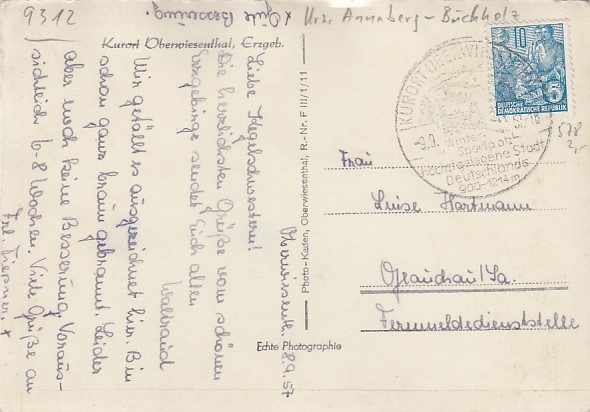 9312
Krs. Annaberg-Buchholz
Kurort Oberwiesenthal, Erzgeb.
Oberwiesenth. 8.9.57
Liebe Kegelschwestern!
Die herzlichsten Grüße vom schönen
Erzgebirge sendet Euch allen
Waltraud
Mir gefällt es ausgezeichnet hier. Bin
schon ganz braun gebrannt. Leider
aber noch keine Besserung. Voraus-
sichtlich 6-8 Wochen. Viele Grüße an
Frl.
x Gute Besserung.
Photo-Kaden, Oberwiesenthal, R.-Nr. F III/1/11
Echte Photographie
KURORT OBERWIESENTHAL
-9.9.
Sportplatz
Höchstgelegene Stadt
Deutschlands
900-1214m
10
5
DEUTSCHE
DEMOKRATISCHE REPUBLIK
578
2,-
Frau
Luise Hartmann
Glauchau/Sa.
Fernmeldedienststelle